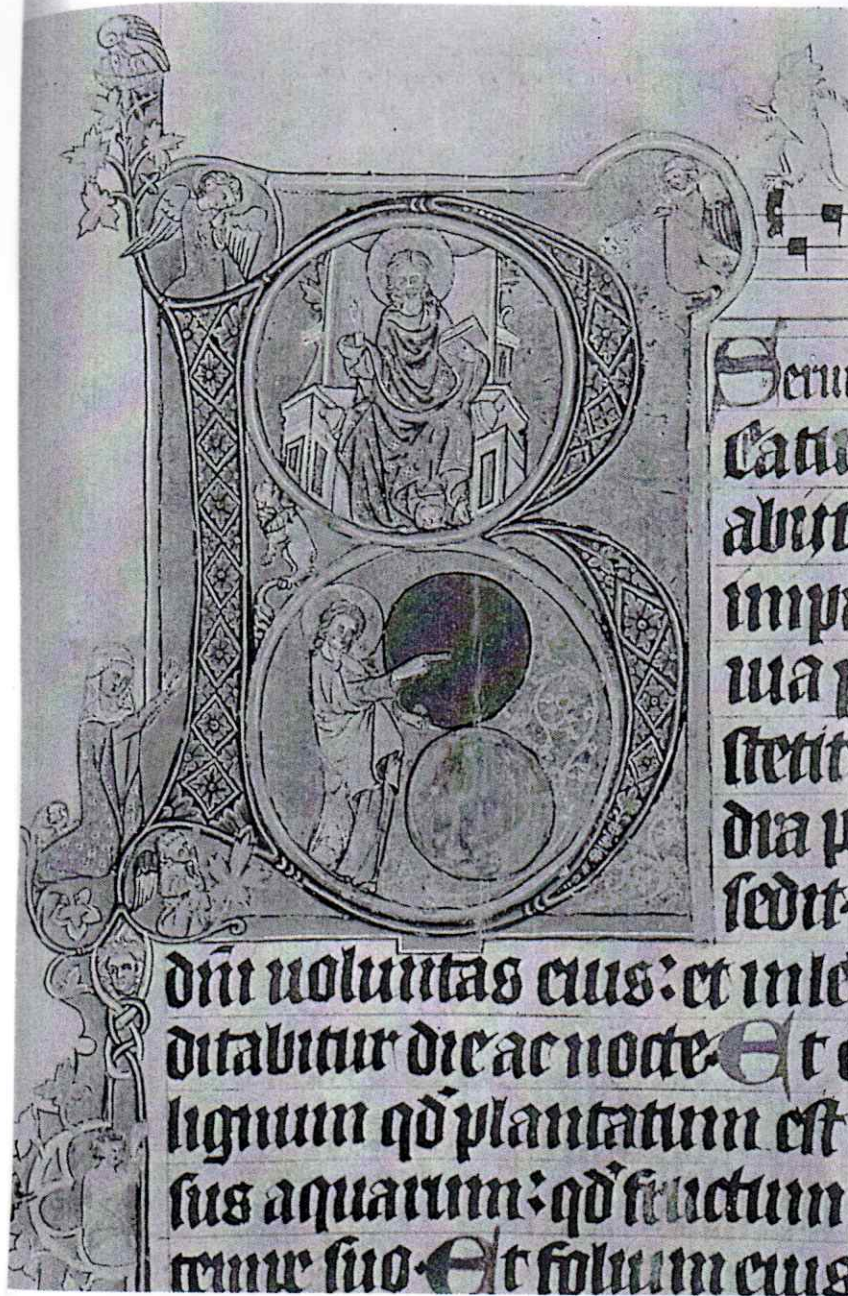 B
Serui
eatus
abiit
impi
uia p
stetit
dra p
sedit.
dn̄i uoluntas eius: et in le
ditabitur die ac nocte. Et e
lignum qd̄ plantatum est
sus aquarum: qd̄ fructum
tempe suo. Et folium eius